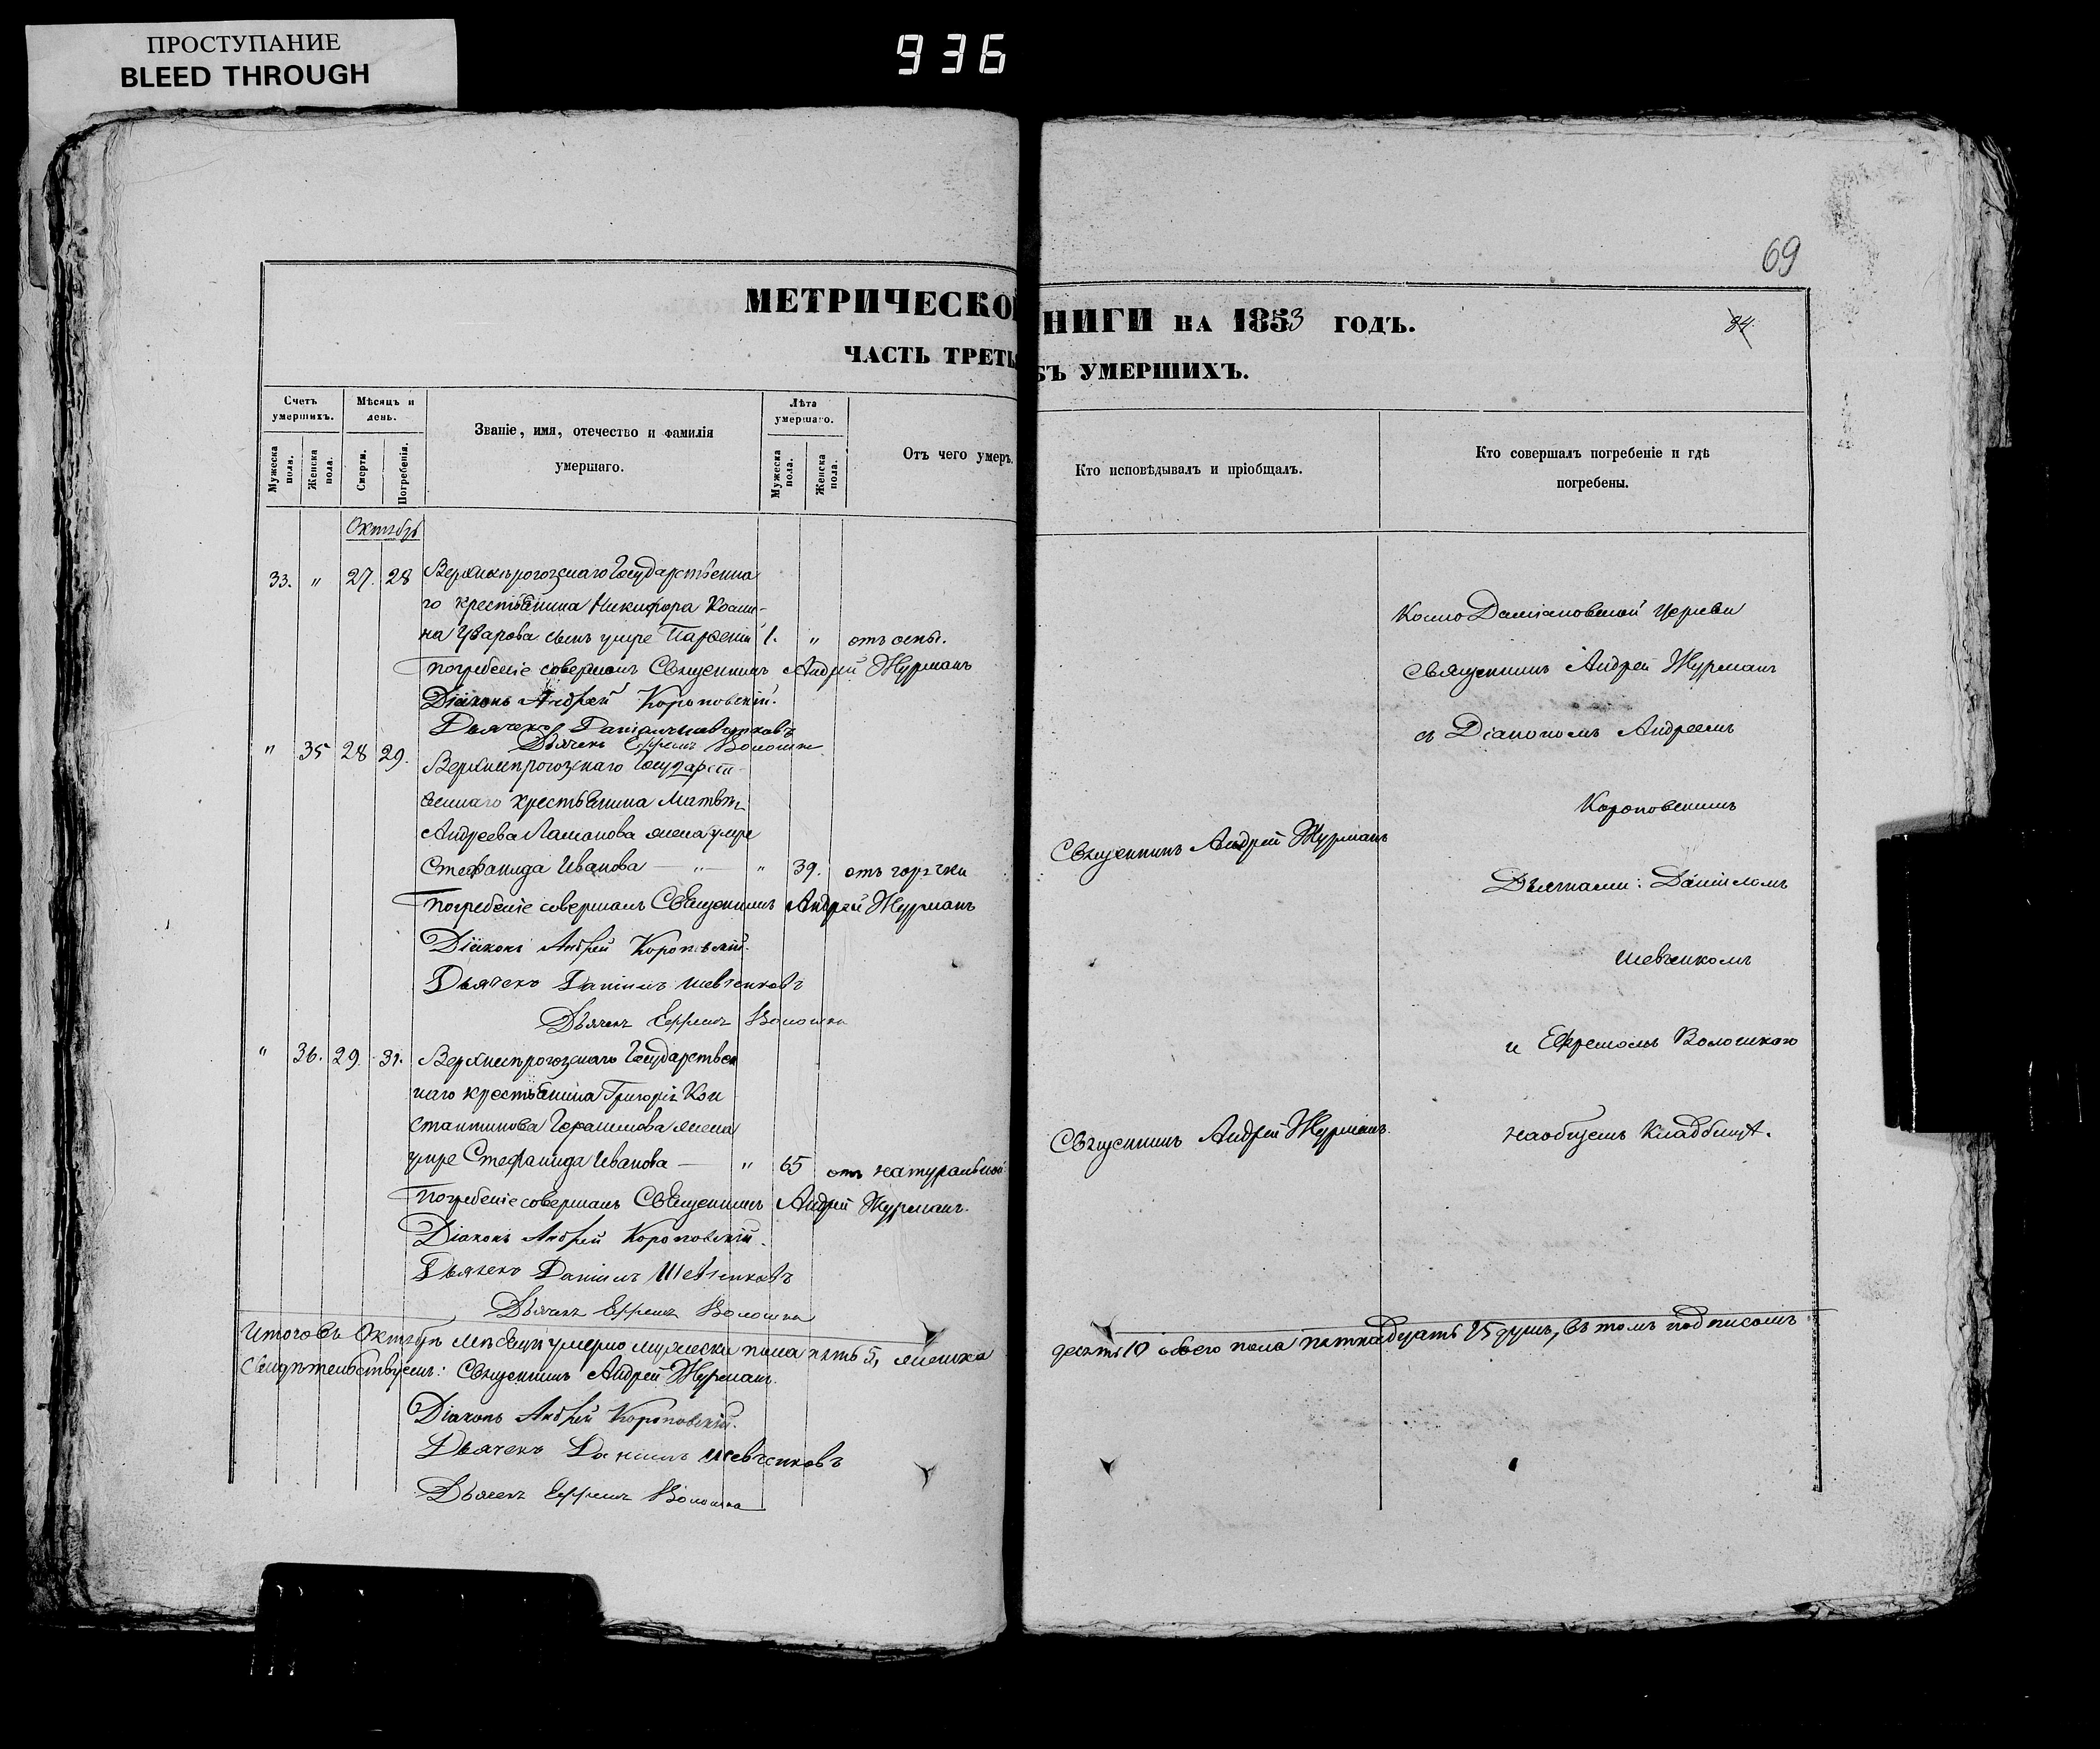 ПРОСТУПАНИЕ
BLEED THROUGH
936
69
МЕТРИЧЕСКО НИГИ НА 1853 ГОДЪ.
84
ЧАСТЬ ТРЕТЬ БЪ УМЕРШИХЪ.
Счетъ умершихъ.
Мужеска пола.
Женска пола.
Мѣсяцъ и день.
Смерти.
Погребенія.
Званіе, имя, отечество и фамилія умершаго.
Лѣта умершаго.
Мужеска пола.
Женска пола.
Отъ чего умеръ.
Кто исповѣдывалъ и пріобщалъ.
Кто совершалъ погребеніе и гдѣ погребены.
Октябрь
33. " 27. 28 Верхнепрогозскаго Государственна
го крестьянина Никифора Косми-
на Уварова сынъ умре Парѳеній 1. " отъ оспы.
Погребеніе совершалъ Священникъ Андрей Журманъ
Діаконъ Андрей Короповскій.
Дьячекъ Даніилъ Шевченковъ
Дьячекъ Ефремъ Волошка
" 35 28 29. Верхнепрогозскаго Государст-
веннаго крестьянина Матвѣя
Андреева Ламанова жена умре
Стефанида Иванова — " — " 39. отъ горячки
Погребеніе совершалъ Священникъ Андрей Журманъ
Діаконъ Андрей Короповскій.
Дьячекъ Даніилъ Шевченковъ
Дьячекъ Ефремъ Волошка
" 36. 29. 31. Верхнепрогозскаго Государствен
наго крестьянина Григорія Кон
стантинова Герасимова жена
умре Стефанида Иванова — " 65 отъ натуральной
Погребеніе совершалъ Священникъ Андрей Журманъ.
Діаконъ Андрей Короповскій.
Дьячекъ Даніилъ Шевченковъ
Дьячекъ Ефремъ Волошка
Итого въ Октябрѣ мѣсяцѣ умерло мужеска пола пять 5, женска
десять 10 обоего пола пятнадцать 15 душъ, въ томъ подписомъ
свидѣтельствуемъ: Священникъ Андрей Журманъ.
Діаконъ Андрей Короповскій.
Дьячекъ Даніилъ Шевченковъ
Дьячекъ Ефремъ Волошка
Священникъ Андрей Журманъ
Священникъ Андрей Журманъ.
Космо Даміановской Церкви
Священникъ Андрей Журманъ
съ Діакономъ Андреемъ
Короповскимъ
Дьячками: Даніиломъ
Шевченкомъ
и Ефремомъ Волошкою
на общемъ Кладбищѣ.